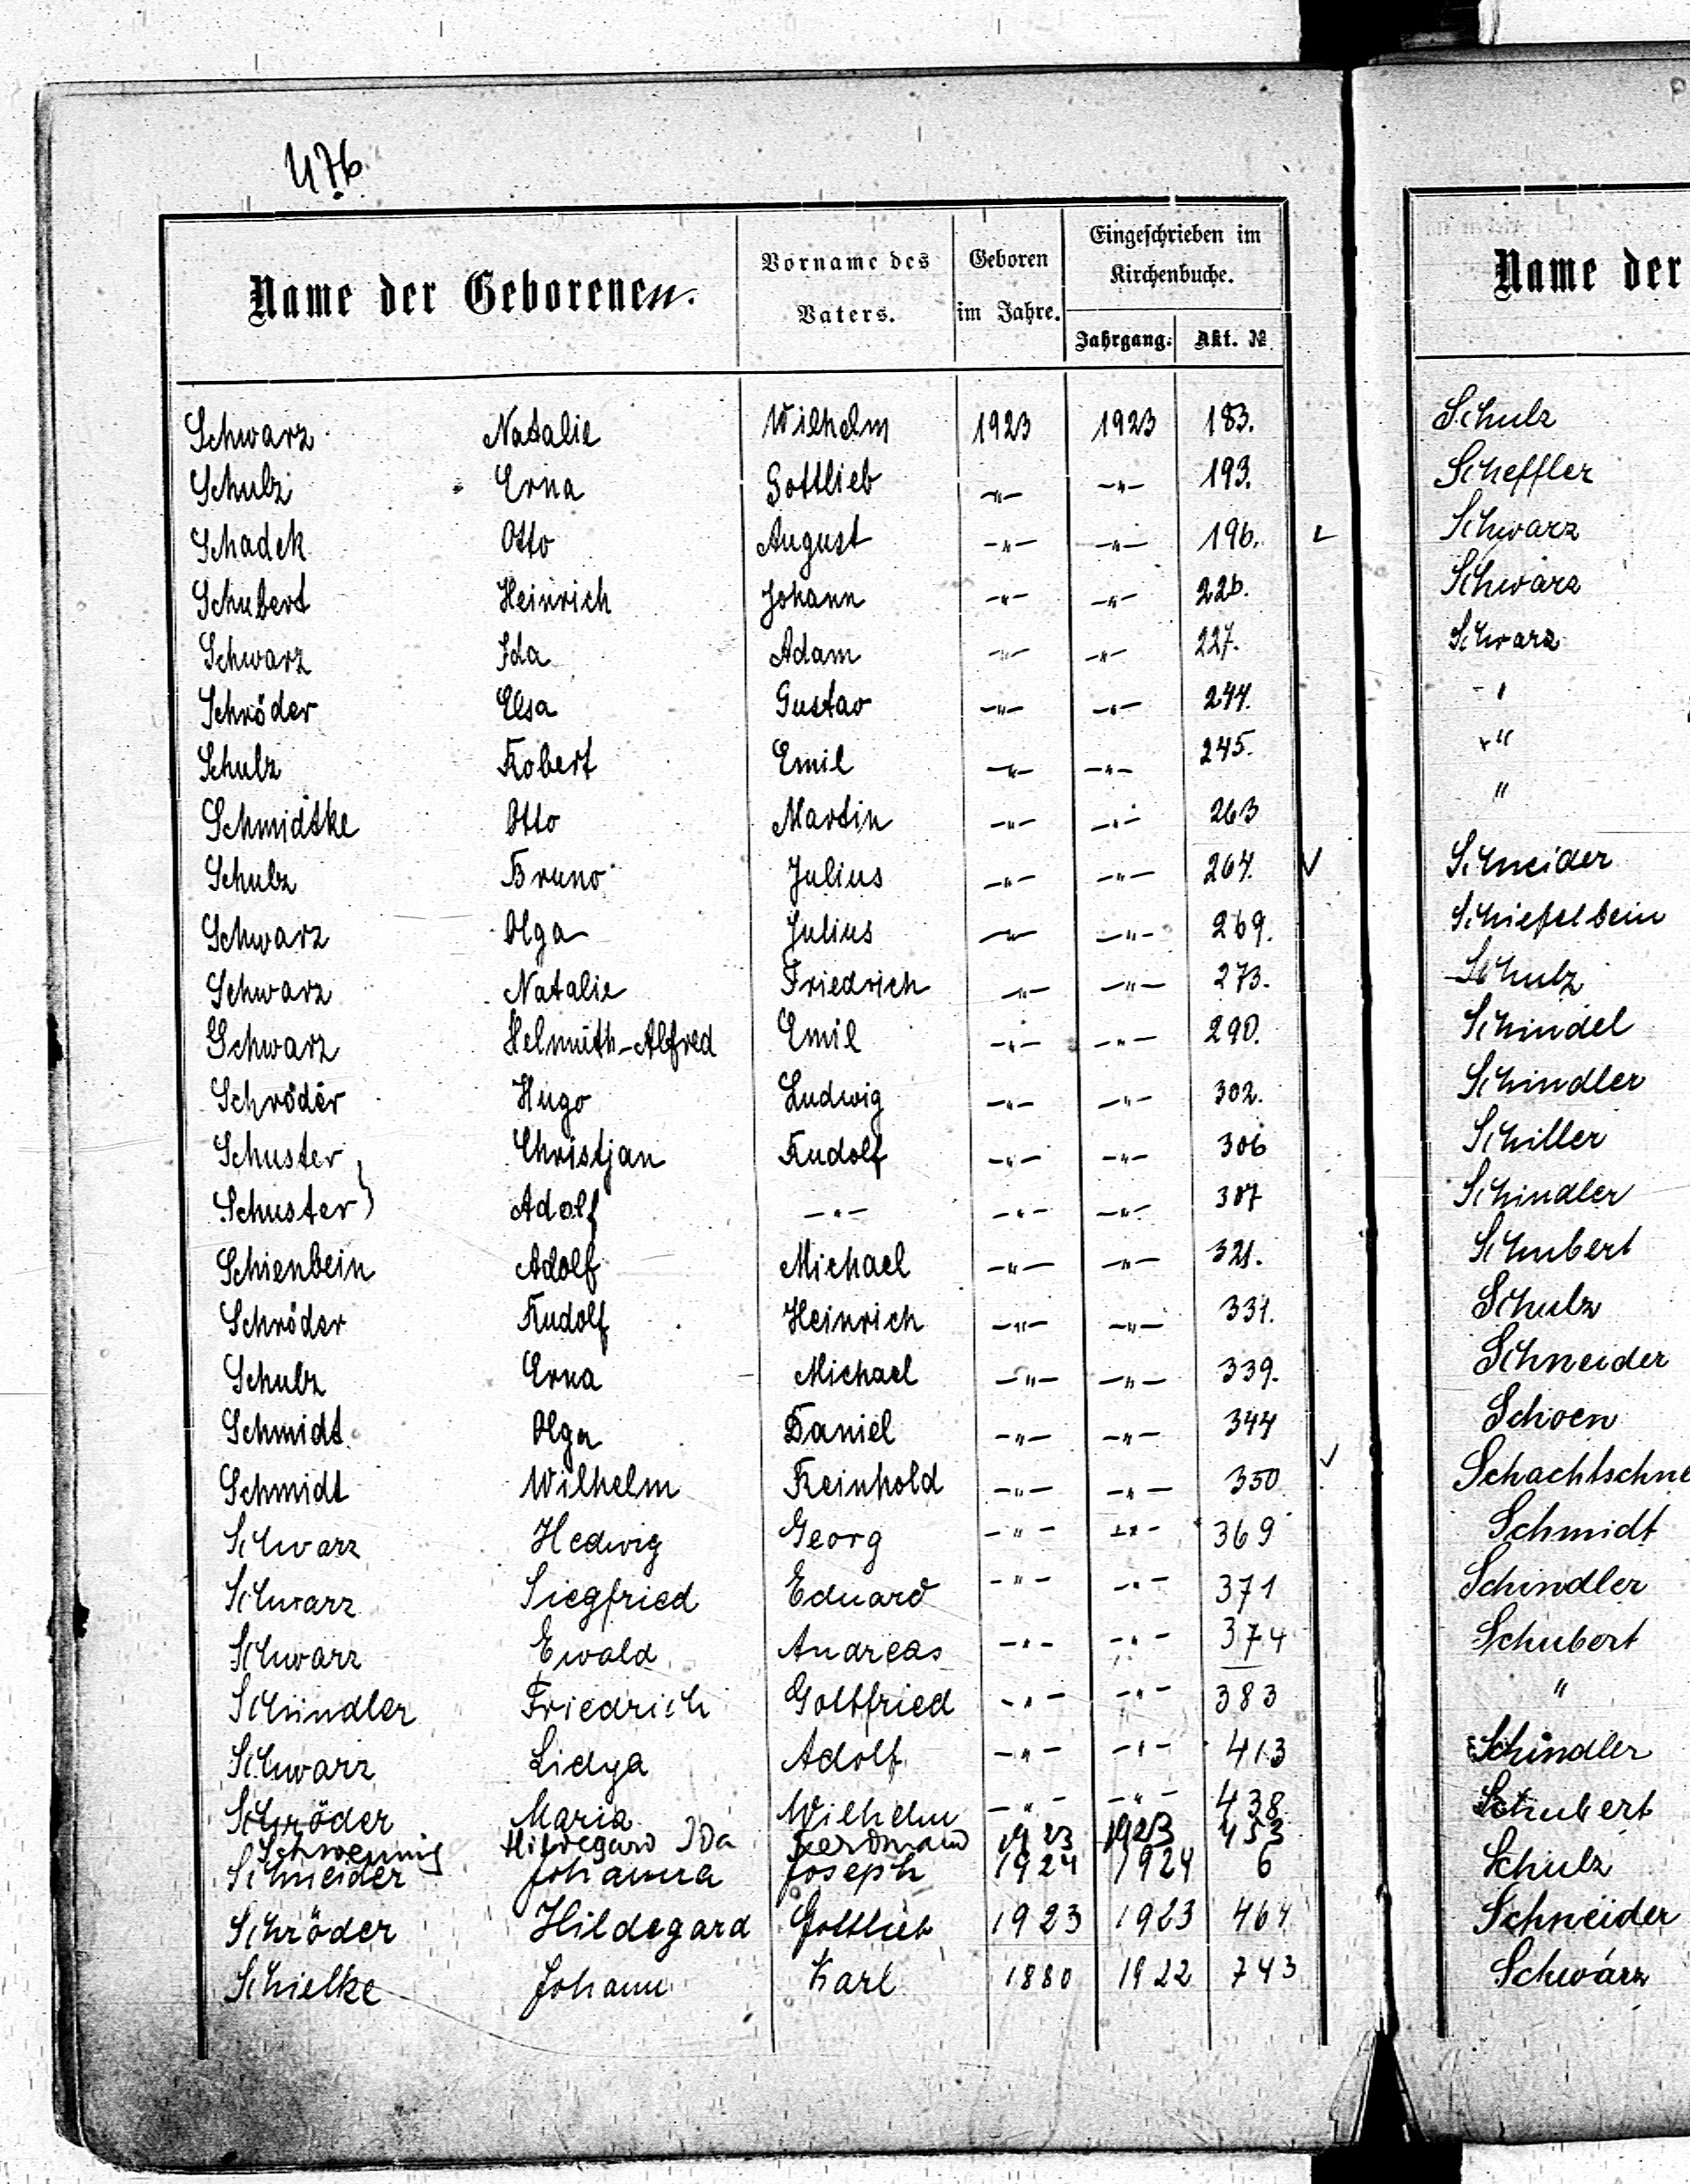 476
Name der Geborenen. Vorname des Vaters. Geboren im Jahre. Eingeschrieben im Kirchenbuche.
Jahrgang. Akt. №
Schwarz Natalie Wilhelm 1923 1923 183.
Schulz Erna Gottlieb —"— —"— 193.
Schadek Otto August —"— —"— 196.
Schubert Heinrich Johann —"— —"— 226.
Schwarz Ida Adam —"— —"— 227.
Schröder Elsa Gustav —"— —"— 244.
Schulz Robert Emil —"— —"— 245.
Schmidtke Otto Martin —"— —"— 263
Schulz Bruno Julius —"— —"— 264.
Schwarz Olga Julius —"— —"— 269.
Schwarz Natalie Friedrich —"— —"— 273.
Schwarz Helmuth-Alfred Emil —"— —"— 290.
Schröder Hugo Ludwig —"— —"— 302.
Schuster Christjan Rudolf —"— —"— 306
Schuster Adolf —"— —"— —"— 307
Schienbein Adolf Michael —"— —"— 321.
Schröder Rudolf Heinrich —"— —"— 331.
Schulz Erna Michael —"— —"— 339.
Schmidt Olga Daniel —"— —"— 344
Schmidt Wilhelm Reinhold —"— —"— 350
Schwarz Hedwig Georg —"— —"— 369
Schwarz Siegfried Eduard —"— —"— 371
Schwarz Ewald Andreas —"— —"— 374
Schindler Friedrich Gottfried —"— —"— 383
Schwarz Lidya Adolf —"— —"— 413
Schröder Maria Wilhelm —"— —"— 438
Schwennig Hildegard Ida Ferdinand 1923 1923 453
Schneider Johanna Joseph 1924 1924 6
Schröder Hildegard Gottlieb 1923 1923 464
Schielke Johann Karl 1880 1922 743
Name der
Schulz
Scheffler
Schwarz
Schwarz
Schwarz
"
"
"
Schneider
Schiefelbein
Schulz
Schindel
Schindler
Schiller
Schindler
Schubert
Schulz
Schneider
Schoen
Schachtschne
Schmidt
Schindler
Schubert
"
Schindler
Schubert
Schulz
Schneider
Schwarz